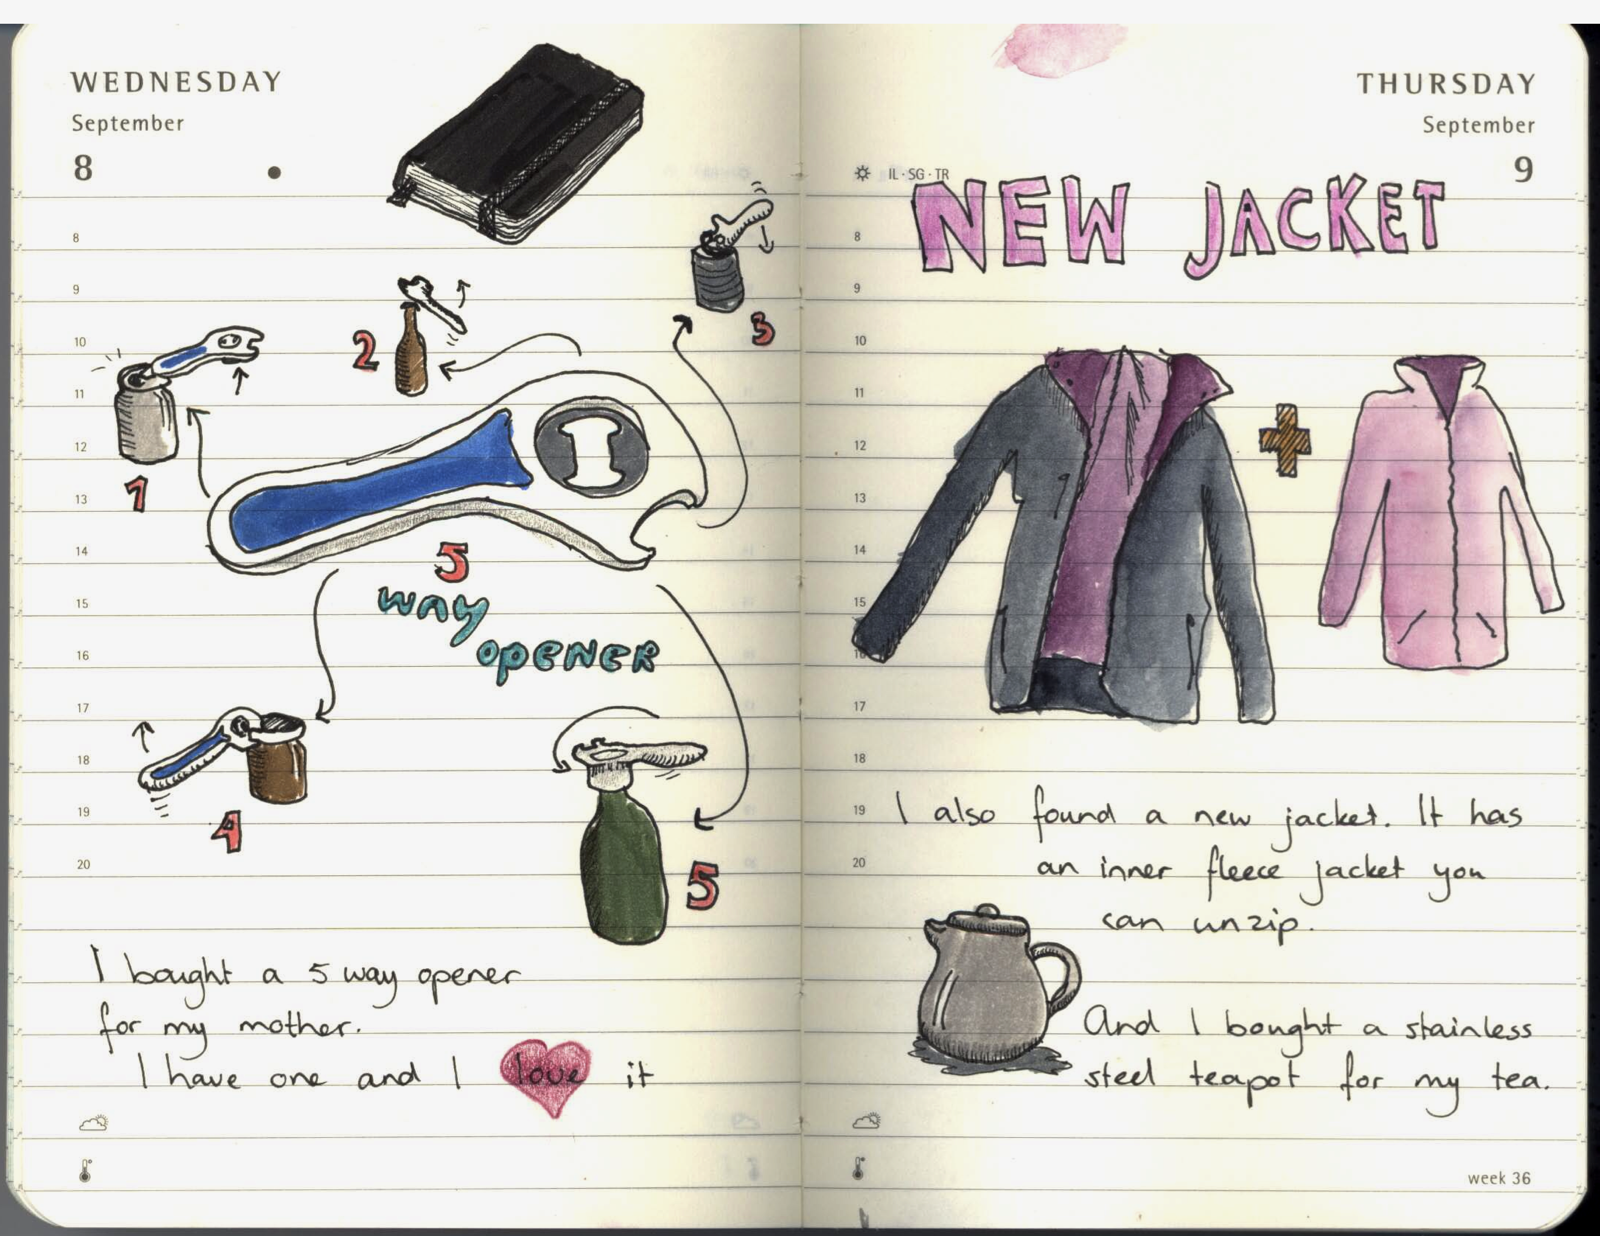 WEDNESDAY
September
8
8
9
10
11
12
13
14
15
16
17
18
19
20
1
2
3
5
way
opener
4
5
I bought a 5 way opener
for my mother.
I have one and I love it
THURSDAY
September
9
IL · SG · TR
NEW JACKET
8
9
10
11
12
13
14
15
16
17
18
19
20
I also found a new jacket. It has
an inner fleece jacket you
can unzip.
And I bought a stainless
steel teapot for my tea.
week 36